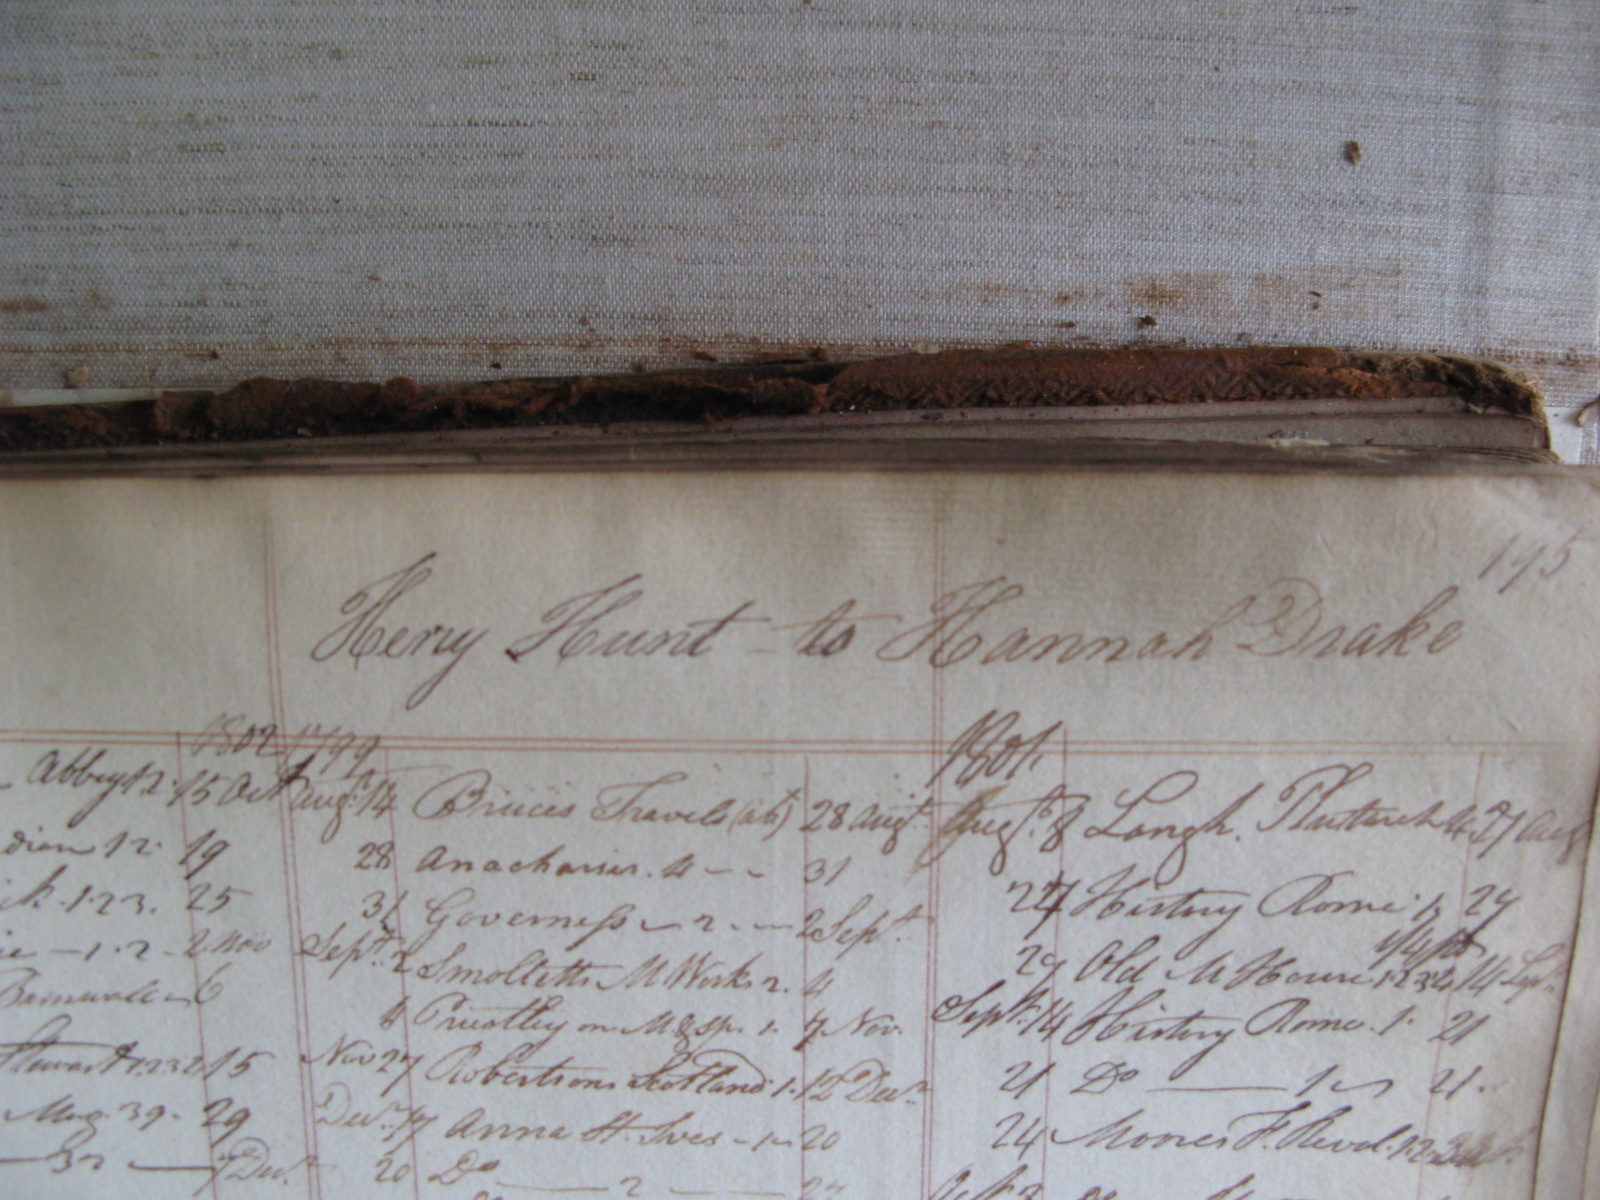 175
Henry Hunt - to Hannah Drake
1802 1799
1801.
Abbey 1 2. 15 Oct
dian 1 2. 19
k. 1. 2 3. 25
ie - 1. 2 - 2 Nov
Barnwall - 6
Stewart 1. 2 3 2 15
Mag. 39. 29
32 — 7 Decr.
Augt. 14 Bruces Travels (ab) 28 Augt.
28 Anacharsis. 4 - - 31
31 Governess - 2. - 2 Sept.
Sept. 2 Smolletts M. Works 2. 4
4 Priestley on M. & Sp. 1. 7 Nov.
Nov 27 Robertsons Scotland 1. 12 Decr.
Decr. 17 Anna St. Ives - 1 - 20
20 Do — 2 — 27
Augt. 8 Langh. Plutarch 4. 27 Aug
27 History Rome 1. 29
29 Old M House 1 2 3 4 14 Sepr.
Sept. 14 History Rome. 1. 21
21 Do — 1 - 21.
24 Moores F. Revol. 1. 2.